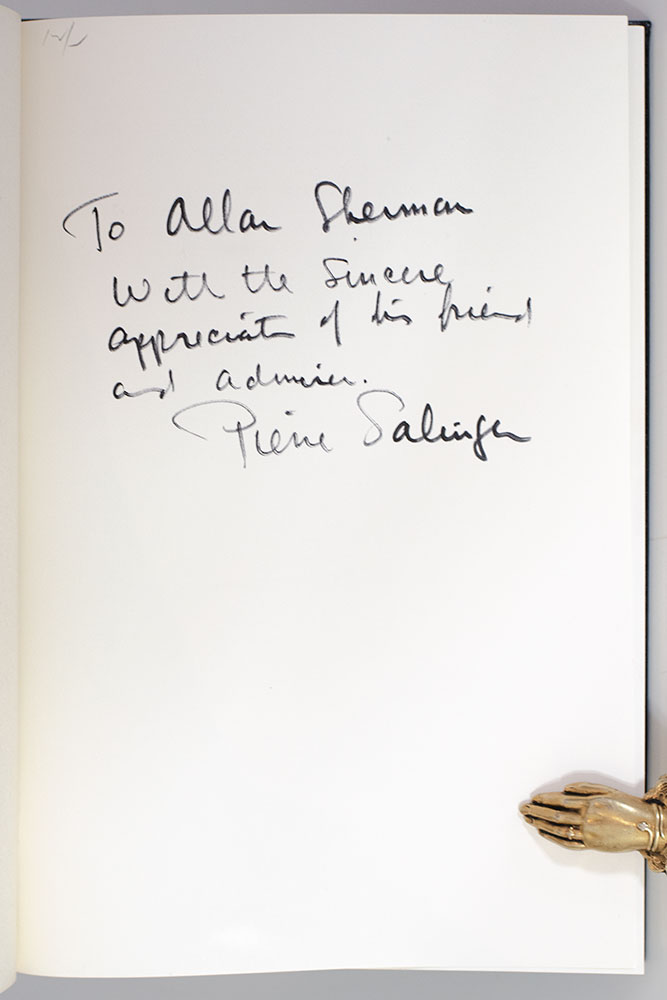 To Allan Sherman
With the sincere
appreciation of his friend
and admirer.
Pierre Salinger